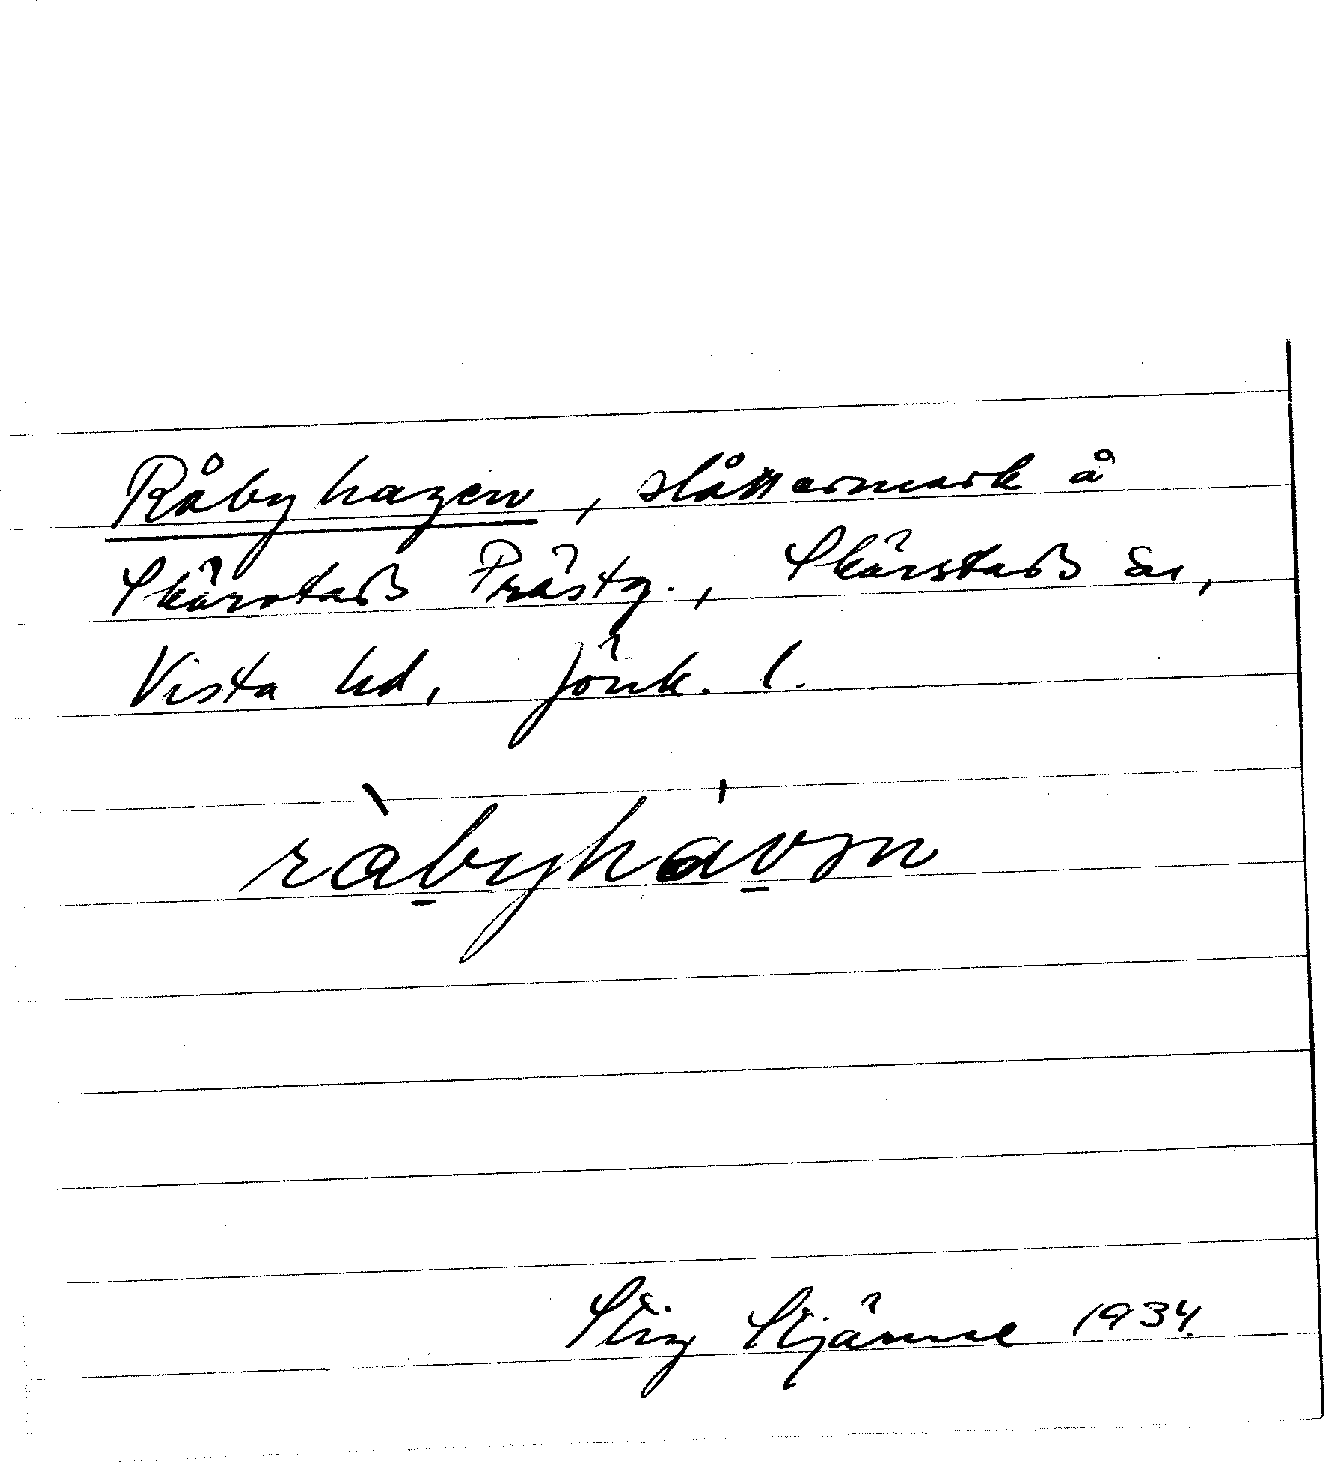 Råbyhagen, slåttermark å
Skärstads Prästg., Skärstads sn,
Vista hd, Jönk. l.
råbyhávɘn
Stig Stjärne 1934.